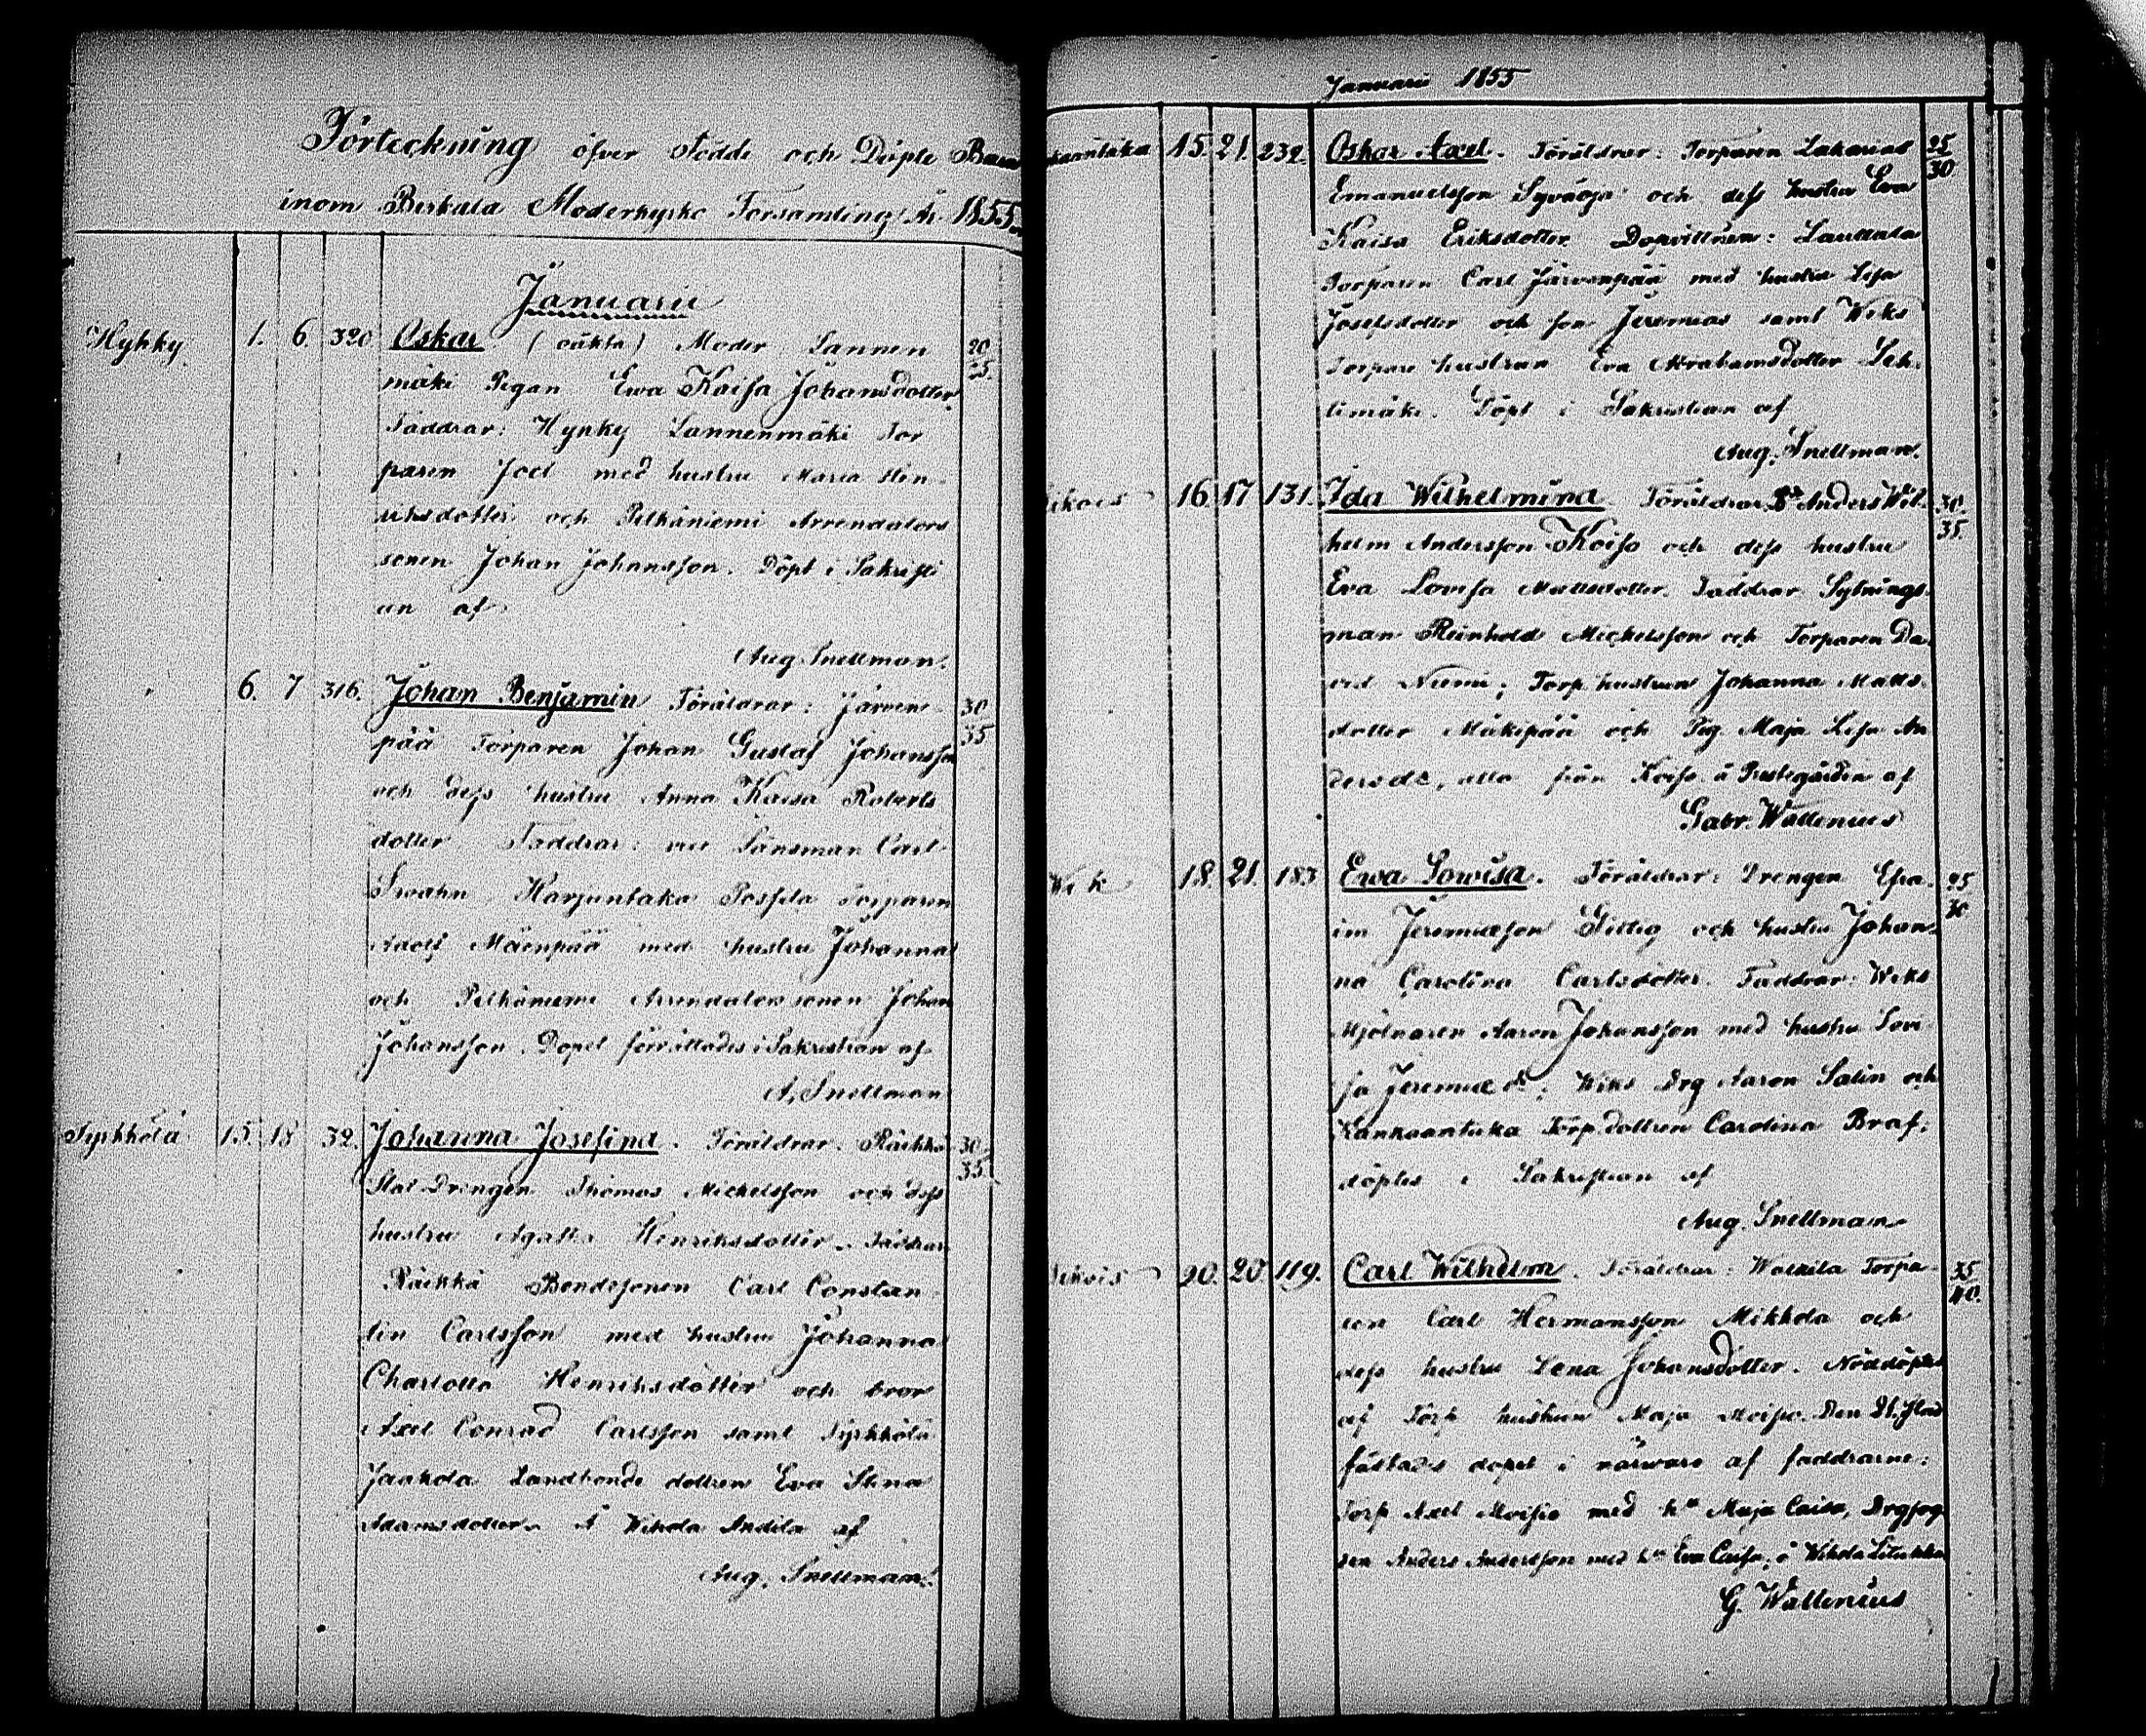 Förteckning öfver födde och Döpte Barn
inom Birkala Moderkyrko Församling År 1855.
Januarii
Hyhky 1. 6 320 Oskar (oäkta) Moder Lannen 20
mäki Pigan Ewa Kaisa Johansdotter, 25.
Faddrar: Hyhky Lannenmäki Tor
paren Joel med hustru Maria Hen
riksdotter och Pelkäniemi Arrendators
sonen Johan Johansson. Döpt i Sakristi
an af
Aug. Snellman.
" 6. 7 316. Johan Benjamin Föräldrar: Järven 30
pää Torparen Johan Gustaf Johansson 35
och dess hustru Anna Kaisa Roberts
dotter Faddrar: vice Länsman Carl
Swahn, Harjuntaka Possila Torparen
Adolf Mäenpää med hustru Johanna
och Pelkäniemi Arrendators sonen Johan
Johansson. Dopet förrättades i Sakristian af
A. Snellman
Tyrkkölä 15. 18 32. Johanna Josefina. Föräldrar. Räikkä 30
Stat Drengen Thomas Michelsson och dess 35.
hustru Agatha Henriksdotter. Faddrar
Räikkä Bondesonen Carl Constan
tin Carlsson med hustru Johanna
Charlotta Henriksdotter och bror
Axel Conrad Carlsson samt Tyrkkölä
Jaakola Landbonde dottren Eva Stina
Adamsdotter. Å Wihola Andila af
Aug. Snellman.
Januarii 1855
kaantaka 15. 21. 232. Oskar Axel. Föräldrar: Torparen Zakarias 25
Emanuelsson Syväoja och dess hustru Eva 30
Kaisa Eriksdotter Dopvittnen: Lauttala
Torparen Carl Järvenpää med hustru Lisa
Josefsdotter och son Jeremias samt Wiks
Torpare hustrun Eva Abrahamsdotter Leh
timäki. Döpt i Sakristian af
Aug. Snellman.
16. 17 131. Ida Wilhelmina Föräldrar Anders Wil 30.
helm Andersson Koiso och dess hustru 35.
Eva Lovisa Mattsdotter. Faddrar Sytnings
man Reinhold Michelsson och Torparen Da
vid Niemi; Torp. hustrun Johanna Matts
dotter Mäkipää och Pig. Maja Lisa An
dersdr, alla från Koiso å Prestegården af
Gabr. Wallenius
Wik 18. 21. 183 Ewa Lowisa. Föräldrar: Drengen Efra 25
im Jeremiasson Sittig och hustru Johan 30
na Carolina Carlsdotter. Faddrar: Wiks
Mjölnaren Aaron Johansson med hustru Lovi
sa Jeremiæ dr; Wiks Drg Aaron Salin och
Kankaantaka Torp. dottren Carolina Braf;
döptes i Sakristian af
Aug. Snellman
20. 20 119. Carl Wilhelm. Föräldrar: Walkila Torpa 35
ren Carl Hermansson Mikkola och 40.
dess hustru Lena Johansdotter. Nöddöptes
af Torp hustrun Maja Moisio. Den 21. stad
fästades dopet i närvaro af faddrarne:
Torp Axel Moisio med hu Maja Caisa, Drg
Anders Andersson med hu Eva Caisa, å Wihola
G. Wallenius